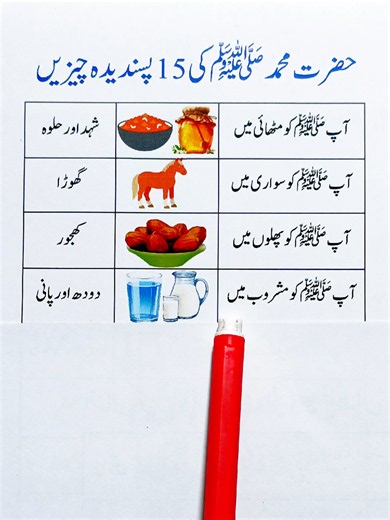 حضرت محمد ﷺ کی 15 پسندیدہ چیزیں
آپ ﷺ کو مٹھائی میں شہد اور حلوہ
آپ ﷺ کو سواری میں گھوڑا
آپ ﷺ کو پھلوں میں کھجور
آپ ﷺ کو مشروب میں دودھ اور پانی